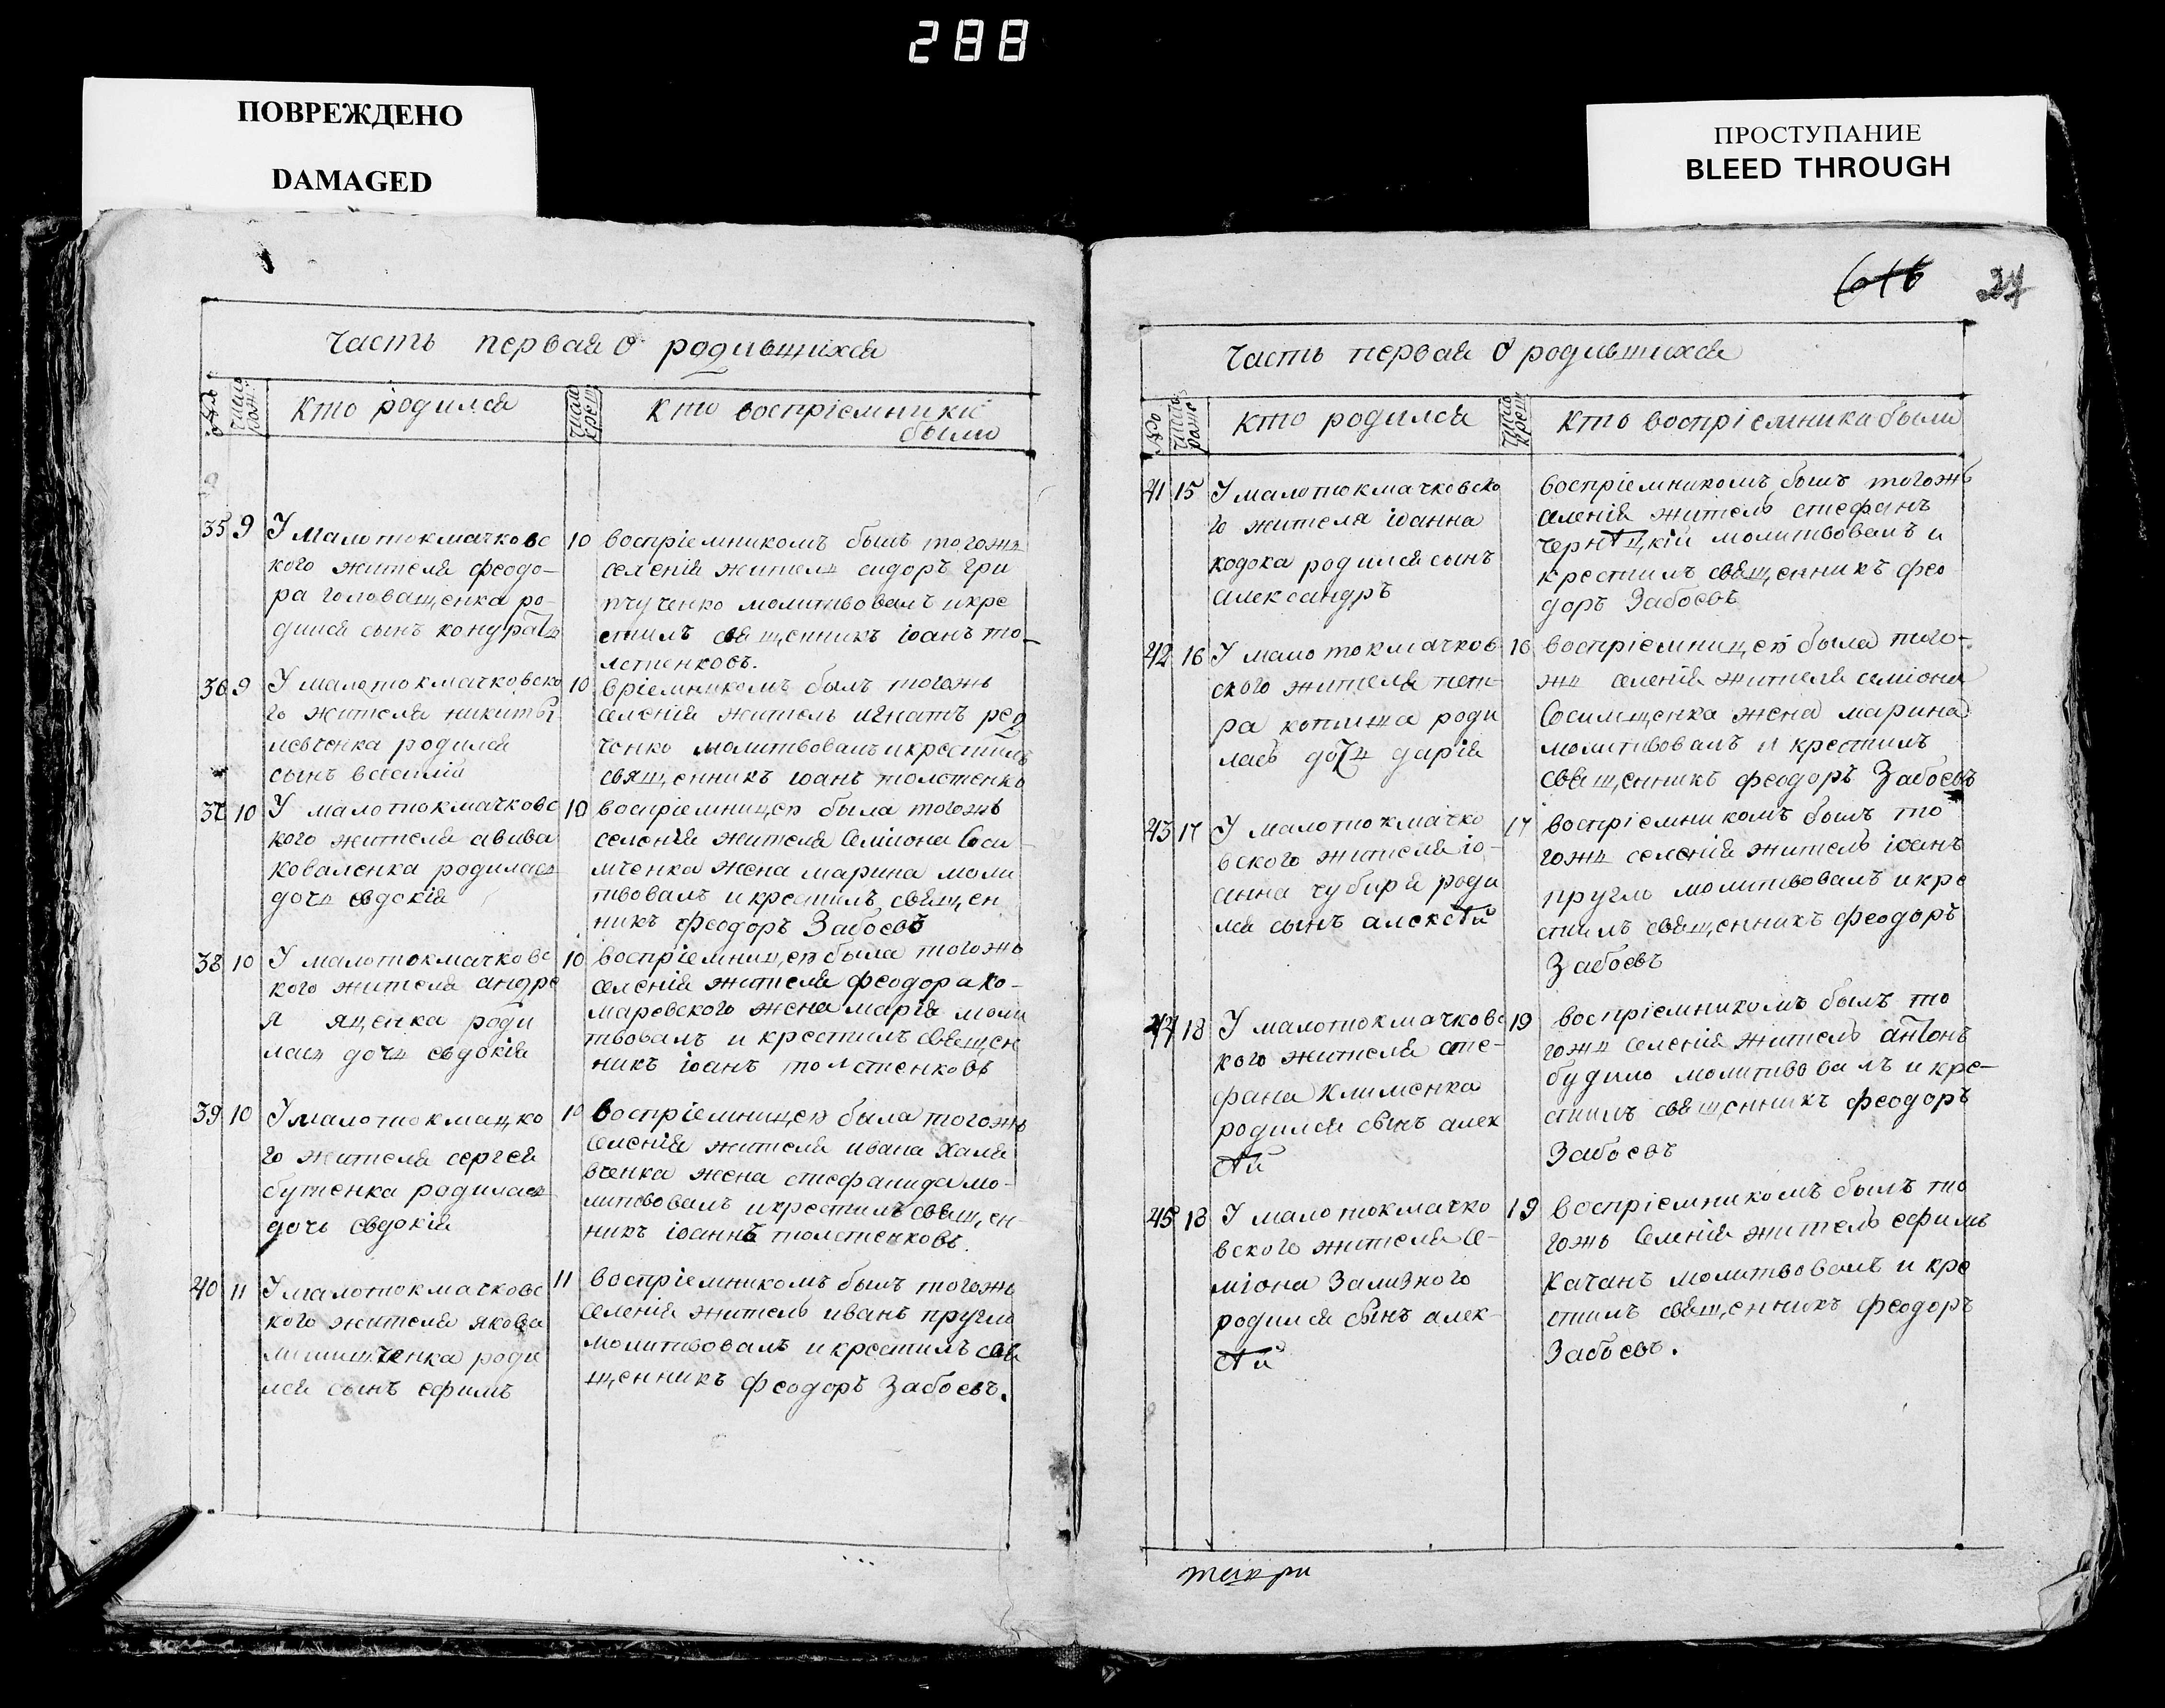 288
ПОВРЕЖДЕНО
DAMAGED
ПРОСТУПАНИЕ
BLEED THROUGH
Часть первая О родившихся
Кто родился
Кто воспріемники
были
35 9 У малотокмачковс
кого жителя феодо-
ра головащенка ро-
дился сынъ кондратъ
10 воспріемникомъ былъ тогожъ
селенія житель сидоръ гри
пчученко молитвовалъ икре
стилъ священникъ іоанъ то-
лстенковъ.
36 9 У малотокмачковско
го жителя никиты
левченка родился
сынъ василій
10 вріемникомъ былъ тогожъ
селенія житель игнатъ ред
ченко молитвовалъ икрестилъ
священникъ іоанъ толстенко
37 10 У малотокмачковс
кого жителя авива
коваленка родилась
дочь евдокія
10 воспріемницею была тогожъ
селенія жителя Семіона Соси
мченка жена марина моли
твовалъ икрестилъ священ
никъ феодоръ Забоевъ
38 10 У малотокмачковс
кого жителя андре
я яценка роди
лась дочь евдокія
10 воспріемницею была тогожъ
селенія жителя феодора ко-
маревского жена марія моли
твовалъ и крестилъ священ
никъ іоанъ толстенковъ
39 10 У малотокмацко
го жителя сергея
бутенка родилась
дочь евдокія
10 воспріемницею была тогожъ
селенія жителя ивана халя
вченка жена стефанида мо-
литвовалъ икрестилъ священ-
никъ іоаннъ толстенковъ.
40 11 У малотокмачковс
кого жителя якова
ченка роди
лся сынъ ефимъ
11 воспріемникомъ былъ тогожъ
селенія житель иванъ пругло
молитвовалъ икрестилъ свя
щенникъ феодоръ Забоевъ.
616 27
Часть первая О родившихся
Кто родился
Кто воспріемника были
41 15 У малотокмачковско
го жителя іоанна
кодока родился сынъ
александръ
воспріемникомъ былъ тогожъ
селенія житель стефанъ
чернѣцкій молитвовалъ и
крестилъ священникъ фео
доръ Забоевъ
42 16 У малотокмачков
ского жителя пет-
ра коплиша роди
лась дочь дарія
16 воспріемницею была того-
жъ селенія жителя семіона
Сосимщенка жена марина
молитвовалъ и крестилъ
священникъ феодоръ Забоевъ
43 17 У малотокмачко
вского жителя іо-
анна чубиря роди
лся сынъ алексѣй
17 воспріемникомъ былъ то
гожъ селенія житель іоанъ
пругло молитвовалъ икре
стилъ священникъ феодоръ
Забоевъ
44 18 У малотокмачковс
кого жителя сте-
фана Клименка
родился сынъ алек
сѣй
19 воспріемникомъ былъ то
гожъ селенія житель антонъ
будило молитвовалъ и кре-
стилъ священникъ феодоръ
Забоевъ
45 18 У малотокмачко
вского жителя се-
міона Зализного
родился сынъ алек-
сѣй
19 воспріемникомъ былъ то
гожъ Селенія житель ефимъ
Качанъ молитвовалъ и кре
стилъ священникъ феодоръ
Забъевъ.